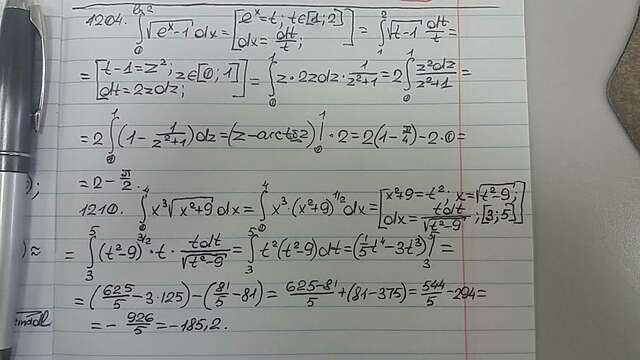 1204. ∫₀^{ln 2} √(eˣ-1) dx = [eˣ=t; t∈[1;2] dx = dt/t;] = ∫₁² √(t-1) dt/t =
= [t-1=z²; z∈[0;1] dt=2zdz;] = ∫₀¹ z·2zdz·1/(z²+1) = 2∫₀¹ z²dz/(z²+1) =
= 2∫₀¹ (1 - 1/(z²+1))dz = (z-arctgz)|₀¹ · 2 = 2(1-π/4)-2·0 =
= 2 - π/2.
1210. ∫₀⁴ x³√(x²+9) dx = ∫₀⁴ x³·(x²+9)^{1/2} dx = [x²+9=t²; x=√(t²-9); dx = tdt/√(t²-9); [3;5]]
= ∫₃⁵ (t²-9)^{3/2}·t·tdt/√(t²-9) = ∫₃⁵ t²(t²-9)dt = (1/5 t⁴-3t³)|₃⁵ =
= (625/5 - 3·125) - (81/5 - 81) = (625-81)/5 + (81-375) = 544/5 - 294 =
= - 926/5 = -185,2.